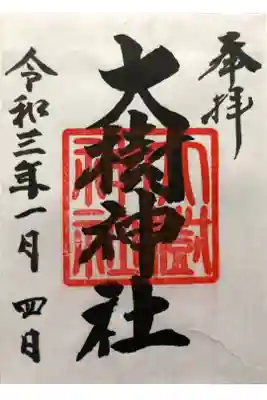 奉拝
大樹神社
令和三年一月四日
大樹神社